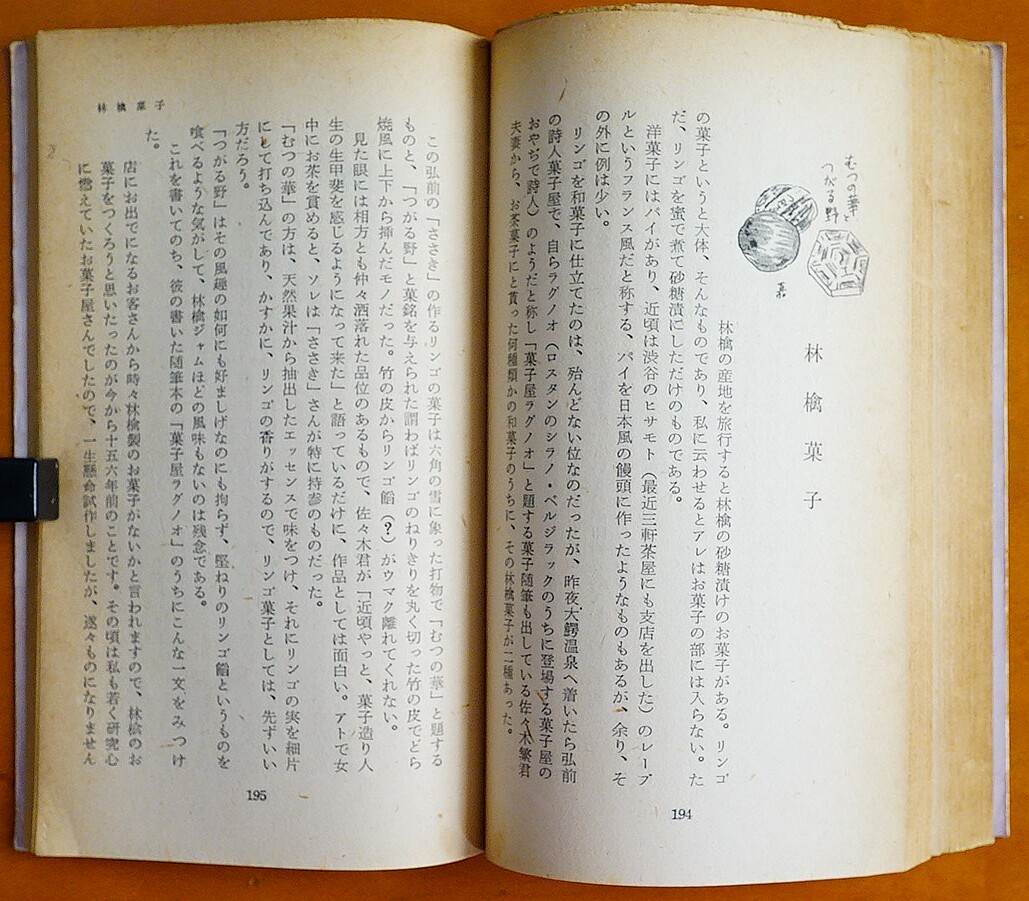 むつの華と
つがる野
林檎菓子
林檎の産地を旅行すると林檎の砂糖漬けのお菓子がある。リンゴ
の菓子というと大体、そんなものであり、私に云わせるとアレはお菓子の部には入らない。た
だ、リンゴを蜜で煮て砂糖漬にしただけのものである。
洋菓子にはパイがあり、近頃は渋谷のヒサモト（最近三軒茶屋にも支店を出した）のレープ
ルというフランス風だと称する、パイを日本風の饅頭に作ったようなものもあるが、余り、そ
の外に例は少い。
リンゴを和菓子に仕立てたのは、殆んどない位なのだったが、昨夜大鰐温泉へ着いたら弘前
の詩人菓子屋で、自らラグノオ（ロスタンのシラノ・ベルジラックのうちに登場する菓子屋の
おやぢで詩人）のようだと称し「菓子屋ラグノオ」と題する菓子随筆も出している佐々木繁君
夫妻から、お茶菓子にと貰った何種類かの和菓子のうちに、その林檎菓子が二種あった。
194
林檎菓子
この弘前の「ささき」の作るリンゴの菓子は六角の雪に象った打物で「むつの華」と題する
ものと、「つがる野」と菓銘を与えられた謂わばリンゴのねりきりを丸く切った竹の皮でどら
焼風に上下から挿んだモノだった。竹の皮からリンゴ餡（？）がウマク離れてくれない。
見た眼には相方とも仲々洒落れた品位のあるもので、佐々木君が「近頃やっと、菓子造り人
生の生甲斐を感じるようになって来た」と語っているだけに、作品としては面白い。アトで女
中にお茶を貰めると、ソレは「ささき」さんが特に持参のものだった。
「むつの華」の方は、天然果汁から抽出したエッセンスで味をつけ、それにリンゴの実を細片
にして打ち込んであり、かすかに、リンゴの香りがするので、リンゴ菓子としては、先ずいい
方だろう。
「つがる野」はその風趣の如何にも好ましげなのにも拘らず、堅ねりのリンゴ餡というものを
喰べるような気がして、林檎ジャムほどの風味もないのは残念である。
これを書いてのち、彼の書いた随筆本の「菓子屋ラグノオ」のうちにこんな一文をみつけ
た。
店にお出でになるお客さんから時々林檎製のお菓子がないかと言われますので、林檎のお
菓子をつくろうと思いたったのが今から十五六年前のことです。その頃は私も若く研究心
に燃えていたお菓子屋さんでしたので、一生懸命試作しましたが、遂々ものになりません
195